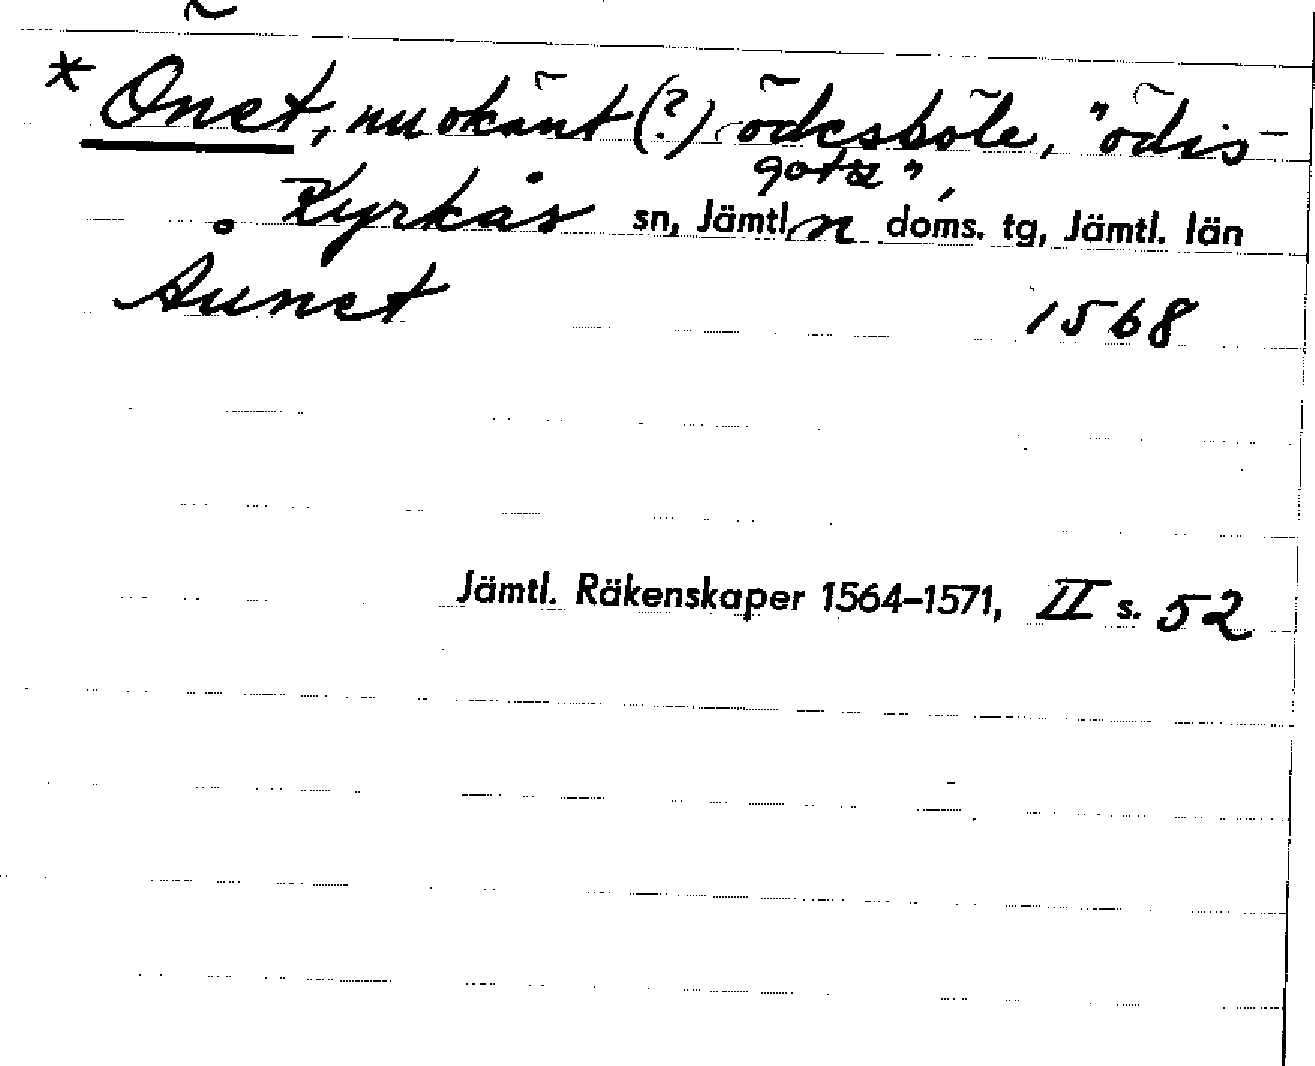 * Önet, nu okänt (?) ödesböle, "ödis-
gotz",
Kyrkås sn, Jämtl. n doms. tg, Jämtl. län
Åunet 1568
Jämtl. Räkenskaper 1564–1571, II s. 52